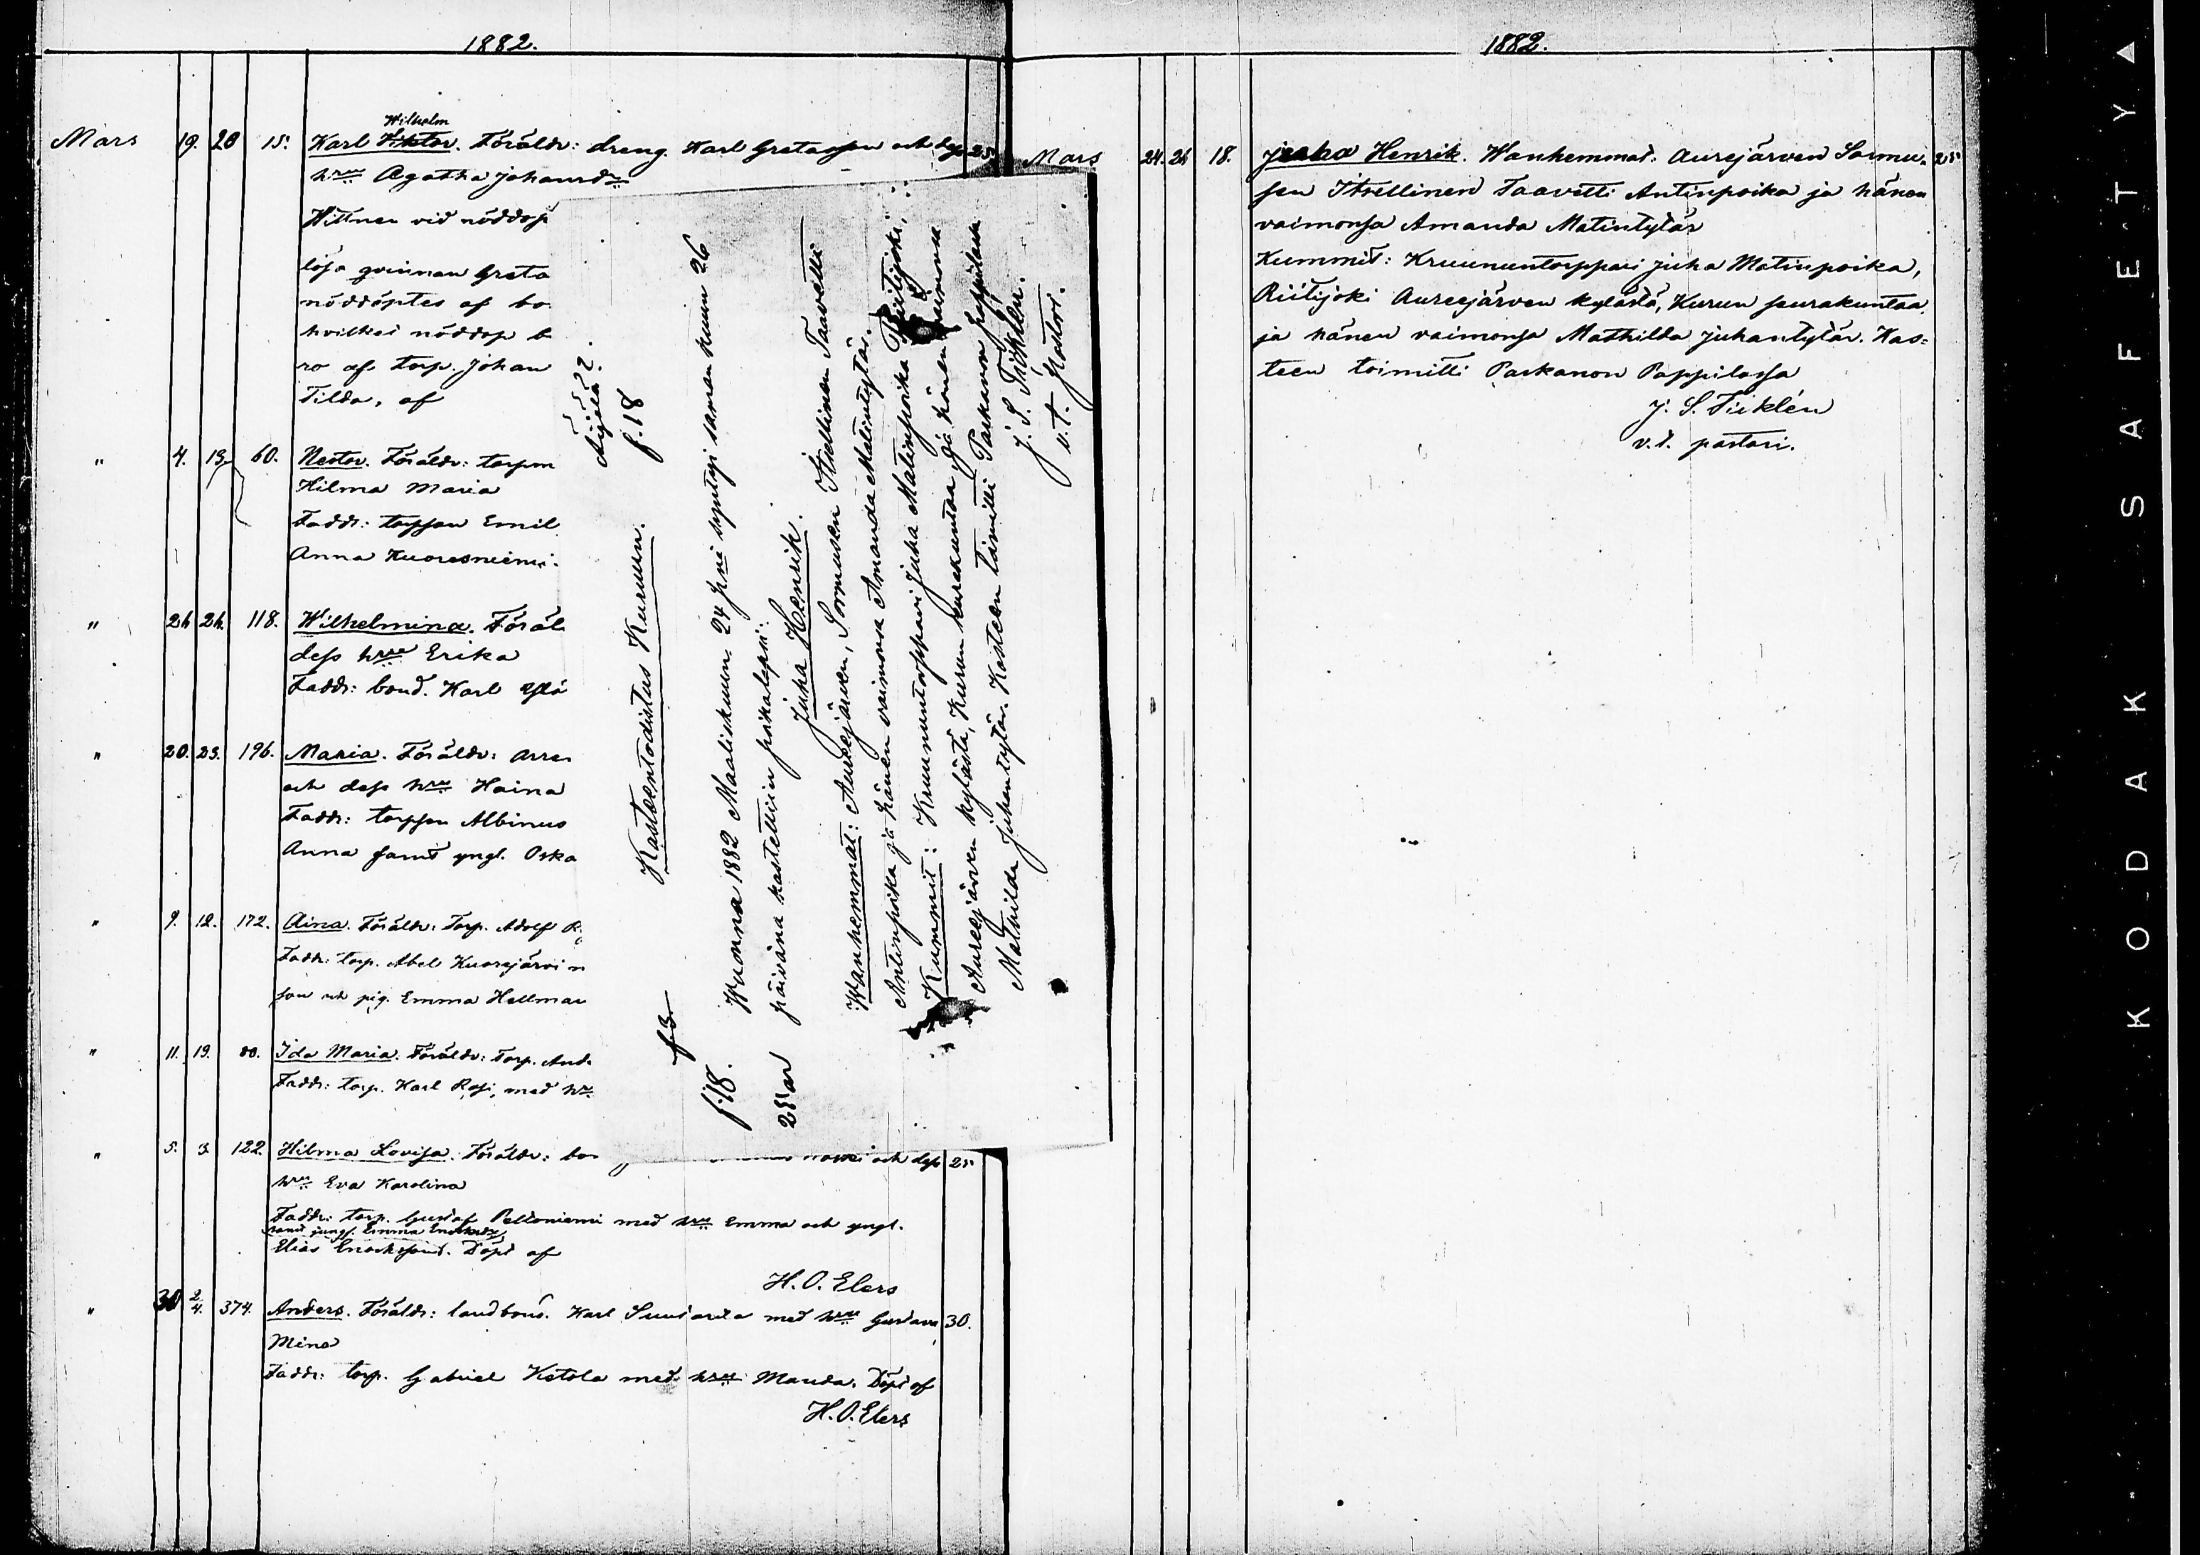 1882.
Mars 19. 20 15. Karl Viktor. Föräldr: dreng. Karl Gretasson och dess 25
Wilhelm
hru Agatha Johansdr
Hittner vid nöddop
lösa qvinnan Greta
nöddöptes af bo
hvilket nöddop b
ro af torp. Johan
Tilda, af
" 4. 13 60. Nestor. Föräldr: torpm
Hilma Maria
Faddr: torpson Emil
Anna Kuoresniemi.
" 24 26. 118. Wilhelmina. Föräl
dess hru Erika
Faddr: bond. Karl
" 20. 23. 196. Maria. Föräldr: Arre
och dess hru Haina
Faddr: torpson Albinus
Anna samt yngl. Oska
" 9. 12. 172. Aina. Föräldr: Torp. Adolf R
Faddr: torp. Abel Kuorejärvi m
son och pig. Emma Hellman
" 11. 19. 80. Ida Maria. Föräldr: Torp. And
Faddr: torp. Karl Rosi, med hru
" 5. 9 122. Hilma Lovisa. Föräldr: bo och dess 25
hru Eva Karolina
Faddr: torp. Gustaf Peltoniemi med hru Emma och yngl.
samt jungf. Emma Enoksdr
Elias Enoksson. Döpt af
H. O. Elers
" 30 2/4. 374. Anders. Föräldr: landbond. Karl med hru Gustava 30.
Mina
Faddr: torp. Gabriel Ketola med hru Manda. Döpt af
H. O. Elers
f. 18
Kasteentodistus Kuruun.
Wuonna 1882 Maaliskuun 24 pnä syntyi saman kuun 26
päivänä kastettiin poikalapsi:
Juha Henrik.
Wanhemmat: Aureejärven, Sormusen Itsellinen Taavetti
Antinpoika ja hänen vaimonsa Amanda Matintytär.
Kummit: Kruununtorppari Juha Matinpoika Riitijoki,
Aureejärven kylästä, Kurun seurakuntaa, ja hänen vaimonsa
Mathilda Juhantytär. Kasteen toimitti Parkanon pappilassa
J. S. Tiiklén.
v. t. pastori.
f. 18.
25 ar
1882.
Mars 24. 26 18. Juha Henrik. Wanhemmat: Aurejärven Sormu- 25
sen Itsellinen Taavetti Antinpoika ja hänen
vaimonsa Amanda Matintytär
Kummit: Kruununtorppari Juha Matinpoika,
Riitijoki Aureejärven kylästä, Kurun seurakuntaa,
ja hänen vaimonsa Mathilda Juhantytär. Kas-
teen toimitti Parkanon Pappilassa
J. S. Tiiklén
v. t. pastori.
KODAK SAFETY